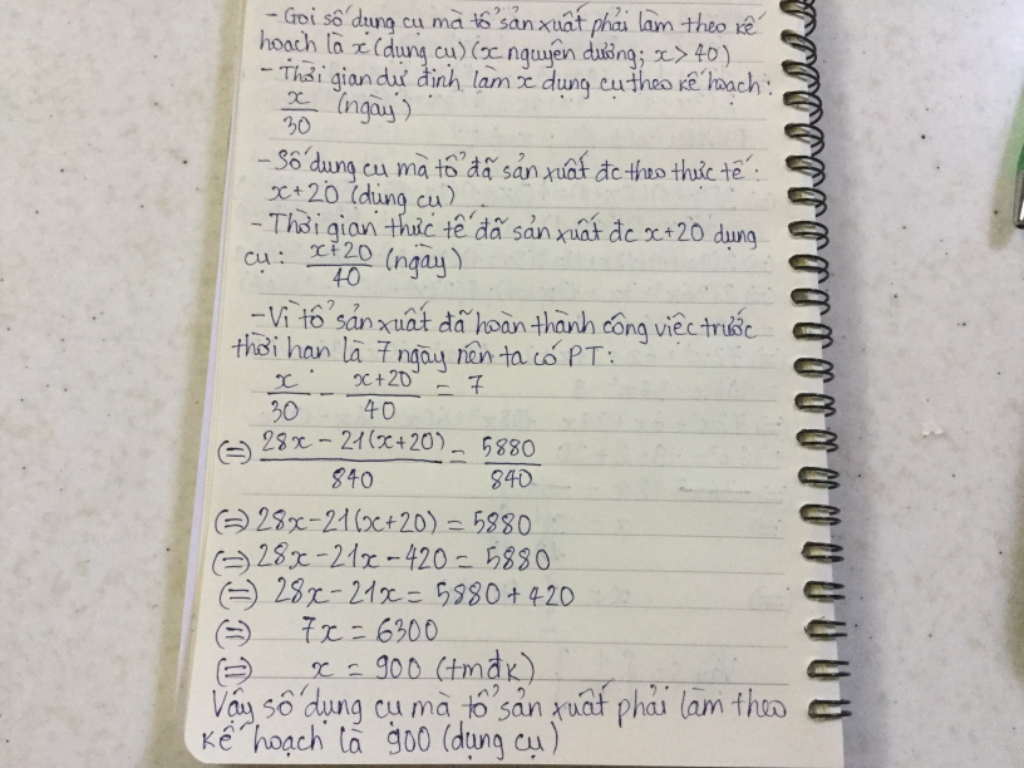 - Gọi số dụng cụ mà tổ sản xuất phải làm theo kế
hoạch là x (dụng cụ) (x nguyên dương; x > 40)
- Thời gian dự định làm x dụng cụ theo kế hoạch:
x/30 (ngày)
- Số dụng cụ mà tổ đã sản xuất đc theo thực tế:
x+20 (dụng cụ)
- Thời gian thực tế đã sản xuất đc x+20 dụng
cụ: (x+20)/40 (ngày)
- Vì tổ sản xuất đã hoàn thành công việc trước
thời hạn là 7 ngày nên ta có PT:
x/30 - (x+20)/40 = 7
(=) (28x - 21(x+20))/840 = 5880/840
(=) 28x - 21(x+20) = 5880
(=) 28x - 21x - 420 = 5880
(=) 28x - 21x = 5880 + 420
(=) 7x = 6300
(=) x = 900 (tmđk)
Vậy số dụng cụ mà tổ sản xuất phải làm theo
kế hoạch là 900 (dụng cụ)